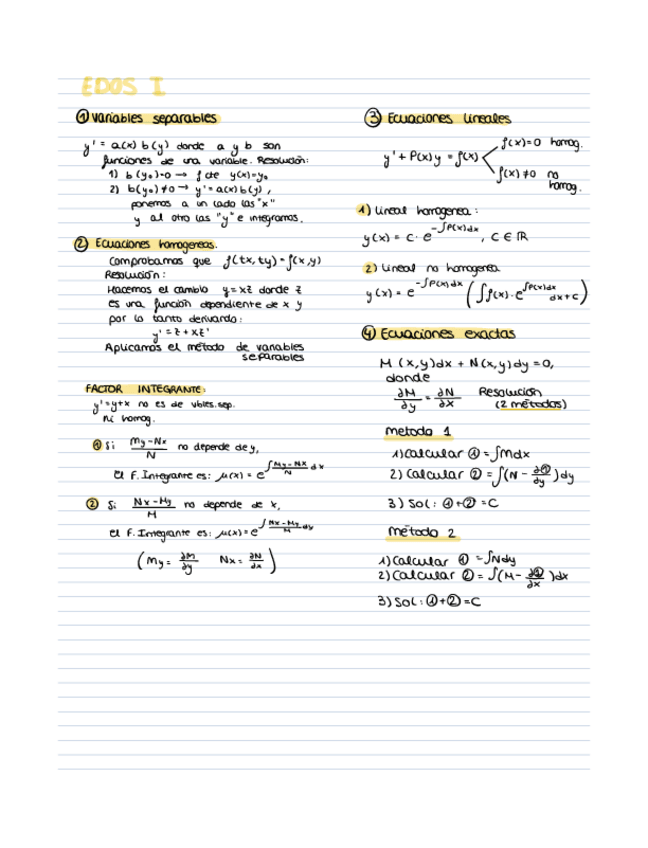 EDOS I
① Variables separables
y' = a(x) b(y) donde a y b son
funciones de una variable. Resolución:
1) b(y₀)=0 → f cte y(x)=y₀
2) b(y₀)≠0 → y'=a(x)b(y),
ponemos a un lado las "x"
y al otro las "y" e integramos.
② Ecuaciones homogeneas.
Comprobamos que f(tx,ty)=f(x,y)
Resolución:
Hacemos el cambio y=xz donde z
es una función dependiente de x y
por lo tanto derivando:
y' = z + xz'
Aplicamos el método de variables
separables
FACTOR INTEGRANTE:
y'=y+x no es de vbles.sep.
Ni homog.
① Si (My-Nx)/N no depende de y,
El F. Integrante es: μ(x) = e^(∫ (My-Nx)/N dx)
② Si (Nx-My)/M no depende de x,
El F. Integrante es: μ(x)=e^(∫ (Nx-My)/M dy)
(My = ∂M/∂y Nx = ∂N/∂x)
③ Ecuaciones lineales
y' + P(x) y = f(x)
f(x)=0 homog.
f(x)≠0 no
homog.
1) Lineal homogenea:
y(x) = C · e^(-∫P(x)dx), C ∈ ℝ
2) Lineal no homogenea
y(x) = e^(-∫P(x)dx) (∫f(x)·e^(∫P(x)dx) dx+c)
④ Ecuaciones exactas
M (x,y)dx + N(x,y)dy = 0,
donde
∂M/∂y = ∂N/∂x Resolución
(2 métodos)
metodo 1
1) calcular ① = ∫Mdx
2) Calcular ② = ∫(N - ∂①/∂y)dy
3) Sol: ①+② = C
Método 2
1) Calcular ① = ∫Ndy
2) Calcular ② = ∫(M - ∂①/∂x)dx
3) Sol: ①+② = C